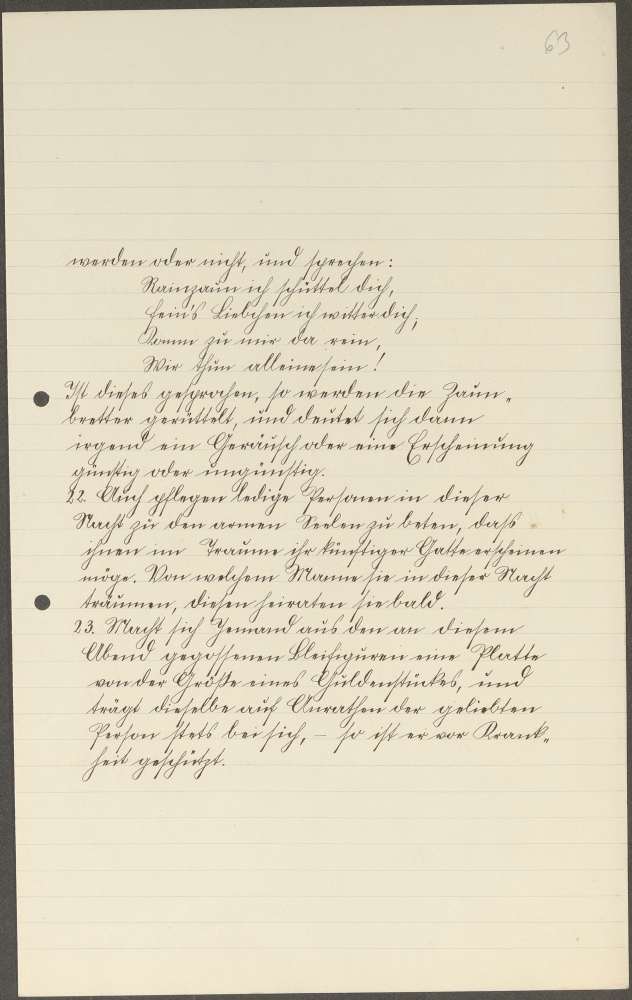 63
werden oder nicht, und sprechen:
Rainzaun ich schüttel dich,
fein's Liebchen ich witter dich;
Komm zu mir da rein,
Wir thun alleine sein!
Ist dieses gesprochen, so werden die Zaun-
bretter gerüttelt, und deutet sich dann
irgend ein Geräusch oder eine Erscheinung
günstig oder ungünstig.
22. Auch pflegen ledige Personen in dieser
Nacht zu den armen Seelen zu beten, dass
ihnen im Traume ihr künftiger Gatte erscheinen
möge. Von welchem Manne sie in dieser Nacht
träumen, diesen heiraten sie bald.
23. Macht sich Jemand aus den an diesem
Abend gegossenen Bleifiguren eine Platte
von der Größe eines Guldenstückes, und
trägt dieselbe auf Anrathen der geliebten
Person stets bei sich, – so ist er vor Krank-
heit geschützt.